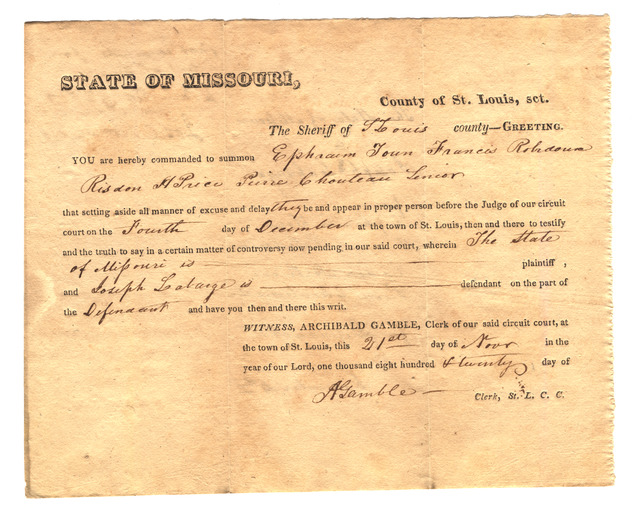 STATE OF MISSOURI,
County of St. Louis, sct.
The Sheriff of St Louis county—GREETING.
YOU are hereby commanded to summon Ephraim Town Francis Robidoux
Risdon H Price Pierre Chouteau Senior
that setting aside all manner of excuse and delay they be and appear in proper person before the Judge of our circuit
court on the Fourth day of December at the town of St. Louis, then and there to testify
and the truth to say in a certain matter of controversy now pending in our said court, wherein The State
of Missouri is plaintiff,
and Joseph Labarge is defendant on the part of
the Defendant and have you then and there this writ.
WITNESS, ARCHIBALD GAMBLE, Clerk of our said circuit court, at
the town of St. Louis, this 21st day of Novr in the
year of our Lord, one thousand eight hundred & twenty day of
A Gamble Clerk, St. L. C. C.